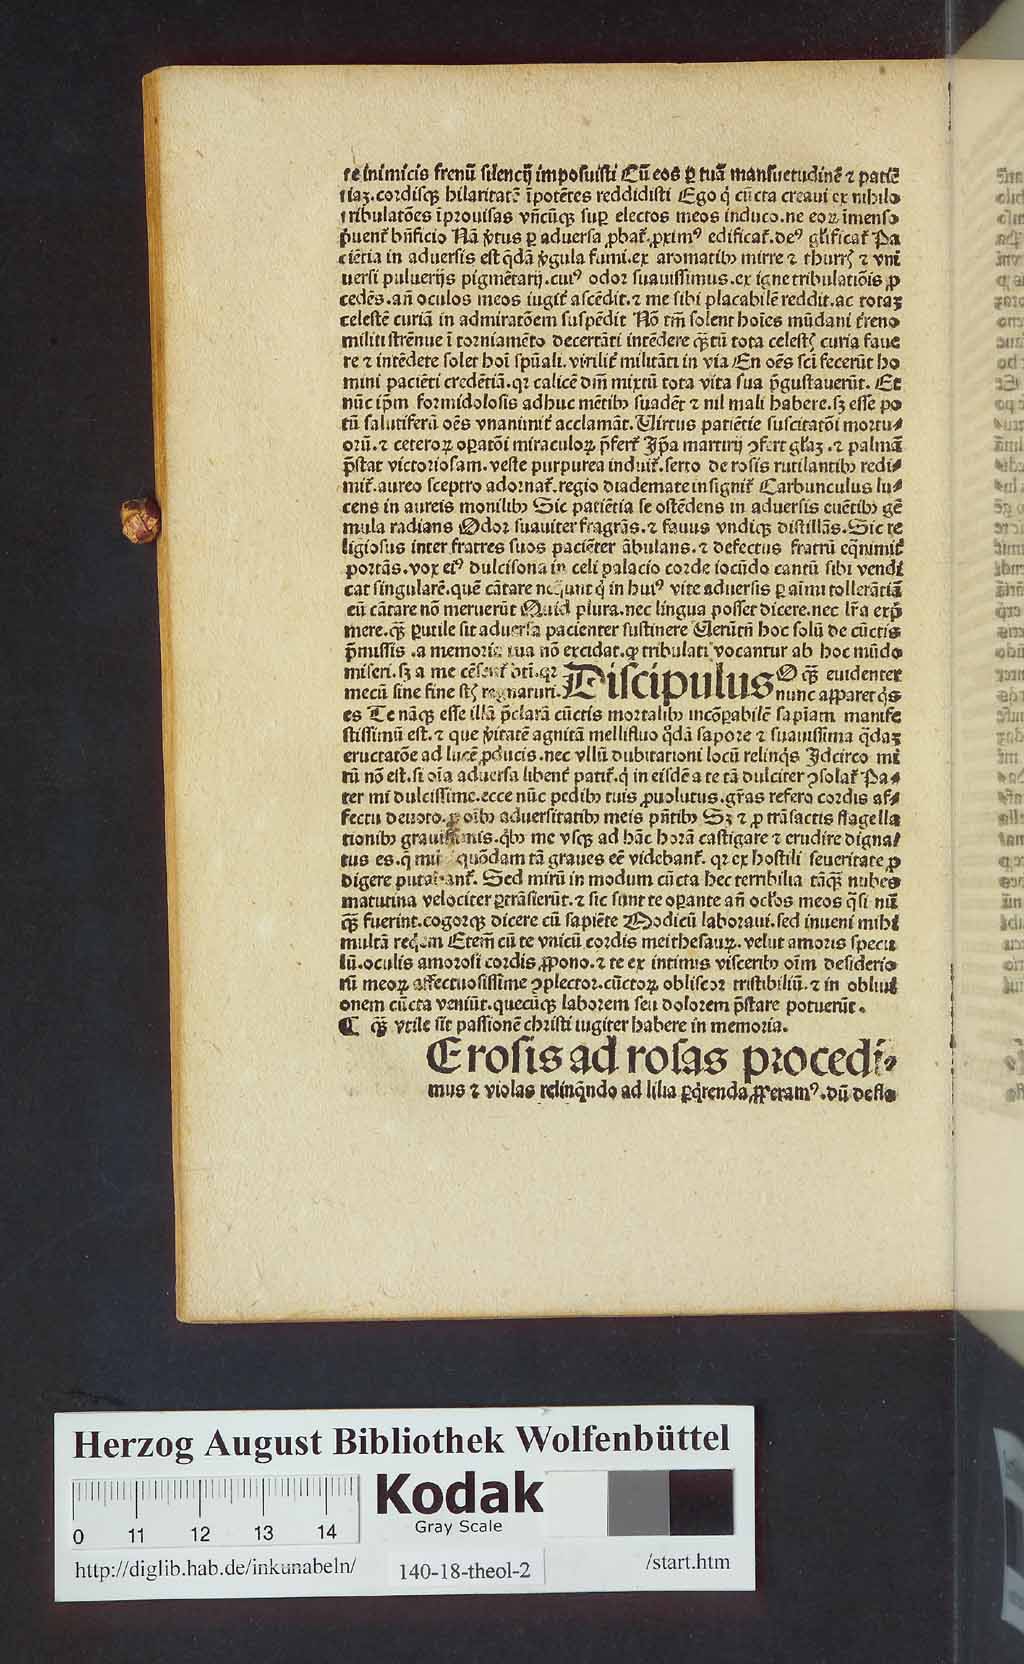 re inimicis frenū silencij imposuisti Cū eos ꝑ tuā mansuetudinē ⁊ patiē
tiaꝫ.cordisqꝫ hilaritatē īpotētes reddidisti Ego q̇ cūcta creaui ex nihilo
tribulatōes īprouisas vn̄cūqꝫ suꝑ electos meos induco.ne eoꝝ īmenso
p̄uenit᷑ bn̄ficio Nā v̓tus ꝑ aduersa ꝓbat᷑.ꝓximꝰ edificat᷑.deꝰ gl̓ificat᷑ Pa
ciētia in aduersis est q̄dā v̓gula fumi.ex aromatibꝫ mirre ⁊ thurꝭ ⁊ vni
uersi puluerijs pigmētarij.cuiꝰ odor suauissimus.ex igne tribulatiōis ꝓ
cedēs.an̄ oculos meos iugit᷑ ascēdit.⁊ me sibi placabilē reddit.ac totaꝫ
celestē curiā in admiratōem suspēdit Nō tm̄ solent hoīes mūdani t᷑reno
militi strēnue ī torniamēto decertāti intēdere qꝫ̄tū tota celestꝭ curia faue
re ⁊ intēdete solet hoī spūali.virilit᷑ militāti in via En oēs sci̅ fecerūt ho
mini paciēti credētiā.qꝛ calicē dn̄i mixtū tota vita sua p̄gustauerūt. Et
nūc ip̄m formidolosis adhuc mētibꝫ suadēt ⁊ nil mali habere.sꝫ esse po
tū salutiferū oēs vnanimit᷑ acclamāt. Virtus patiētie suscitatōi mortu-
orū.⁊ ceteroꝝ oꝑatōi miraculoꝝ p̄fert᷑ Ip̄a martirij ꝯfert gl̓iaꝫ.⁊ palmā
p̄stat victoriosam.veste purpurea induit᷑.serto de rosis rutilantibꝫ redi-
mit᷑.aureo sceptro adornat᷑.regio diademate insignit᷑ Carbunculus lu-
cens in aureis monilibꝫ Sic patiētia se ostēdens in aduersis euētibꝫ gē
mula radians Odor suauiter fragrās.⁊ fauus vndiqꝫ distillās.Sic re
ligiosus inter fratres suos paciēter ābulans.⁊ defectus fratrū eq̄nimit᷑
portās.vox eiꝰ dulcisona in celi palacio corde iocūdo cantū sibi vendi
cat singularē.quē cātare nequunt q̇ in huiꝰ vite aduersis ꝑ aīmi tollerātiā
eū cātare nō meruerūt Quid plura.nec lingua posset dicere.nec lr̄a exp̄
mere.qꝫ̄ ꝑutile sit aduersa pacienter sustinere Verūtn̄ hoc solū de cūctis
p̄missis .a memoria tua nō excidat.ꝙ tribulati vocantur ab hoc mūdo
miseri.sꝫ a me cēsent᷑ bt̄i.qꝛ
mecū sine fine stꝭ regnaturi. Discipulus O qꝫ̄ euidenter
nunc apparet q̇s
es Te nāqꝫ esse illā p̄clarā cūctis mortalibꝫ incōꝑabilē sapīam manife
stissimū est.⁊ que v̓itatē agnitā mellifluo q̊dā sapore ⁊ suauissima q̄daꝫ
eructatōe ad lucē ꝓducis.nec vllū dubitationi locū relinq̇s Idcirco mi
rū nō est.si oīa aduersa libent᷑ patit᷑.q̇ in eisdē a te tā dulciter ꝯsolat᷑ Pa-
ter mi dulcissime.ecce nūc pedibꝫ tuis ꝓuolutus.gr̄as refero cordis af-
fectu deuoto.ꝓ oībꝫ aduersitatibꝫ meis pn̄tibꝫ Sꝫ ⁊ ꝓ trāsactis flagella
tionibꝫ grauissimis.q̇bꝫ me vsqꝫ ad hāc horā castigare ⁊ erudire digna/
tus es.q̄ mihi quōdam tā graues eē videbant᷑. qꝛ ex hostili seueritate ꝓ
digere putabant᷑. Sed mirū in modum cūcta hec terribilia tāqꝫ̄ nubes
matutina velociter ꝑtrāsierūt.⁊ sic sunt te oꝑante an̄ ocl̓os meos q̄si nū
qꝫ̄ fuerint.cogorqꝫ dicere cū sapiēte Modicū laboraui.sed inueni mihi
multā requem Etem̄ cū te vnicū cordis mei thesauꝝ.velut amoris specu
lū.oculis amorosi cordis ꝓpono.⁊ te ex intimis visceribꝫ oīm desiderio
rū meoꝝ affectuosissime ꝯplector.cūctoꝝ obliscor tristibiliū.⁊ in obliui
onem cūcta veniūt.quecūqꝫ laborem seu dolorem p̄stare potuerūt.
¶ qꝫ̄ vtile sit passionē christi iugiter habere in memoria.
E rosis ad rosas procedi-
mus ⁊ violas relinq̄ndo ad lilia ꝑq̇renda ꝓꝑeramꝰ.dū deflo
Herzog August Bibliothek Wolfenbüttel
0 11 12 13 14
Kodak
Gray Scale
http://diglib.hab.de/inkunabeln/ 140-18-theol-2 /start.htm